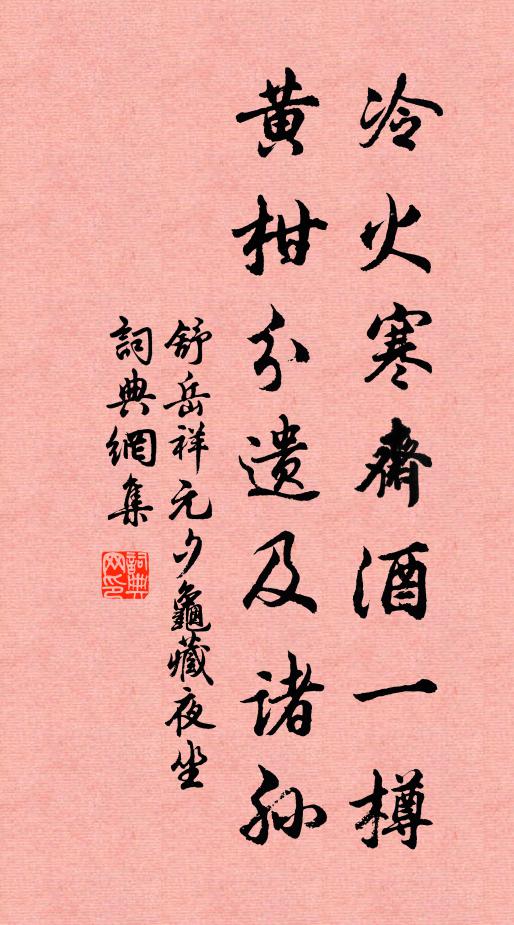 冷火寒齋酒一樽
黃柑分遺及諸孫
舒岳祥元夕龜藏夜坐
詞典網集
詞典網印